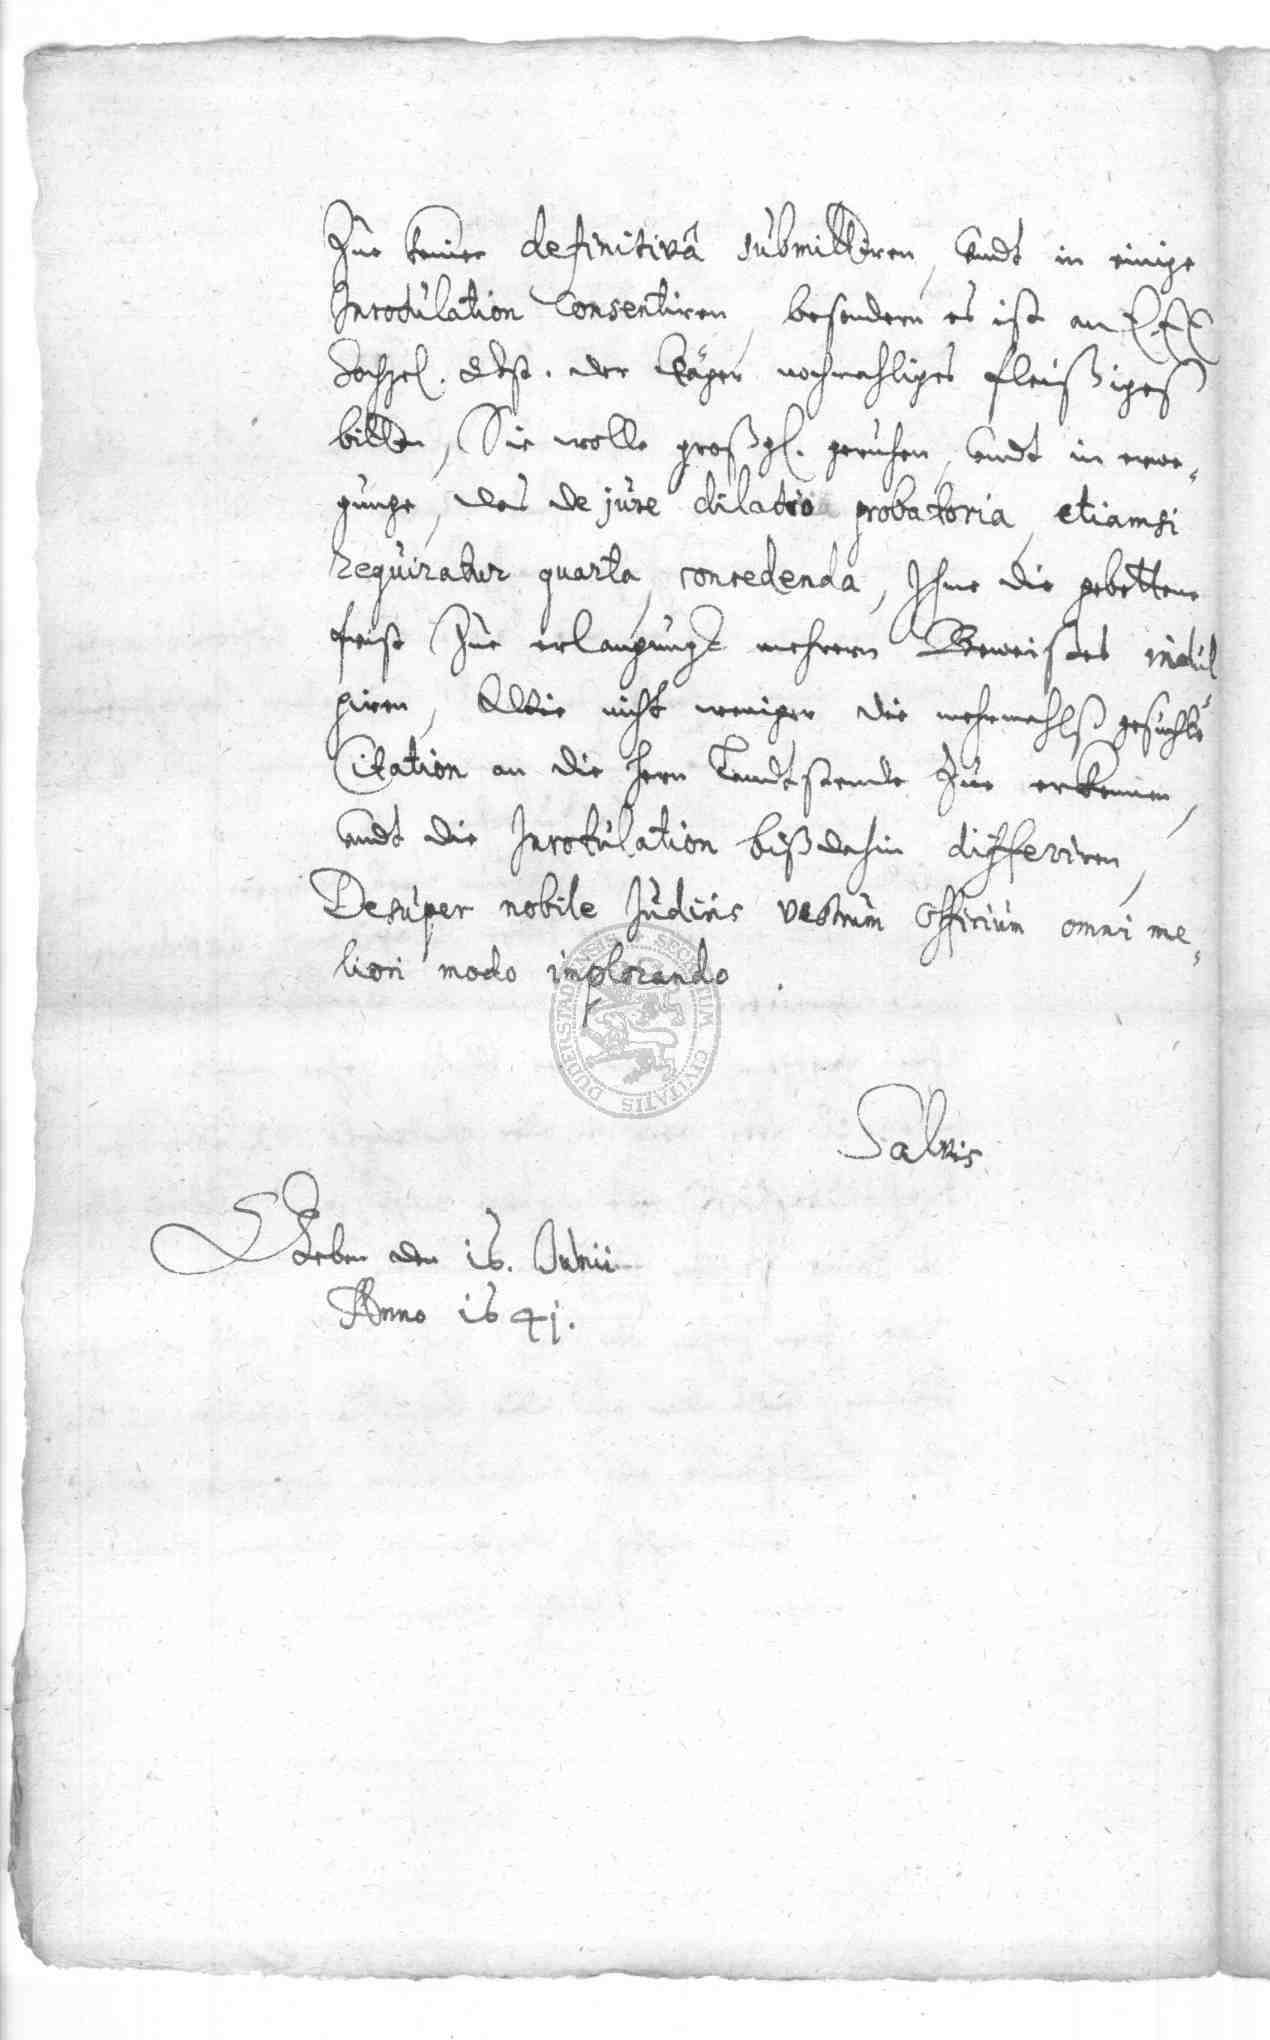 Zue keiner definitivâ submittiren, undt in einige
Inrotulation Consentiren, besondern es ist an E. E. E.
Hochgel. der Kläger nochmahliges fleißiges
bitten, Sie wolle großgl. geruhen, undt in erwe-
gunge, das de jure dilatio probatoria, etiamsi
requiratur quarta, concedenda, Ihme die gebettene
frist Zue erlangung mehrern Beweises indul
giren, Wie nicht weniger die mehrmahls gesuchte
Citation an die Hern Landtstende Zue erkennen,
undt die Inrotulation bißdahin differiren,
Desuper nobile Judicis vestrum Officium omni me-
liori modo implorando.
Salvis
Geben den 16. Junii
Anno 1641.
SECRETUM CIVITATIS DUDERSTADENSIS